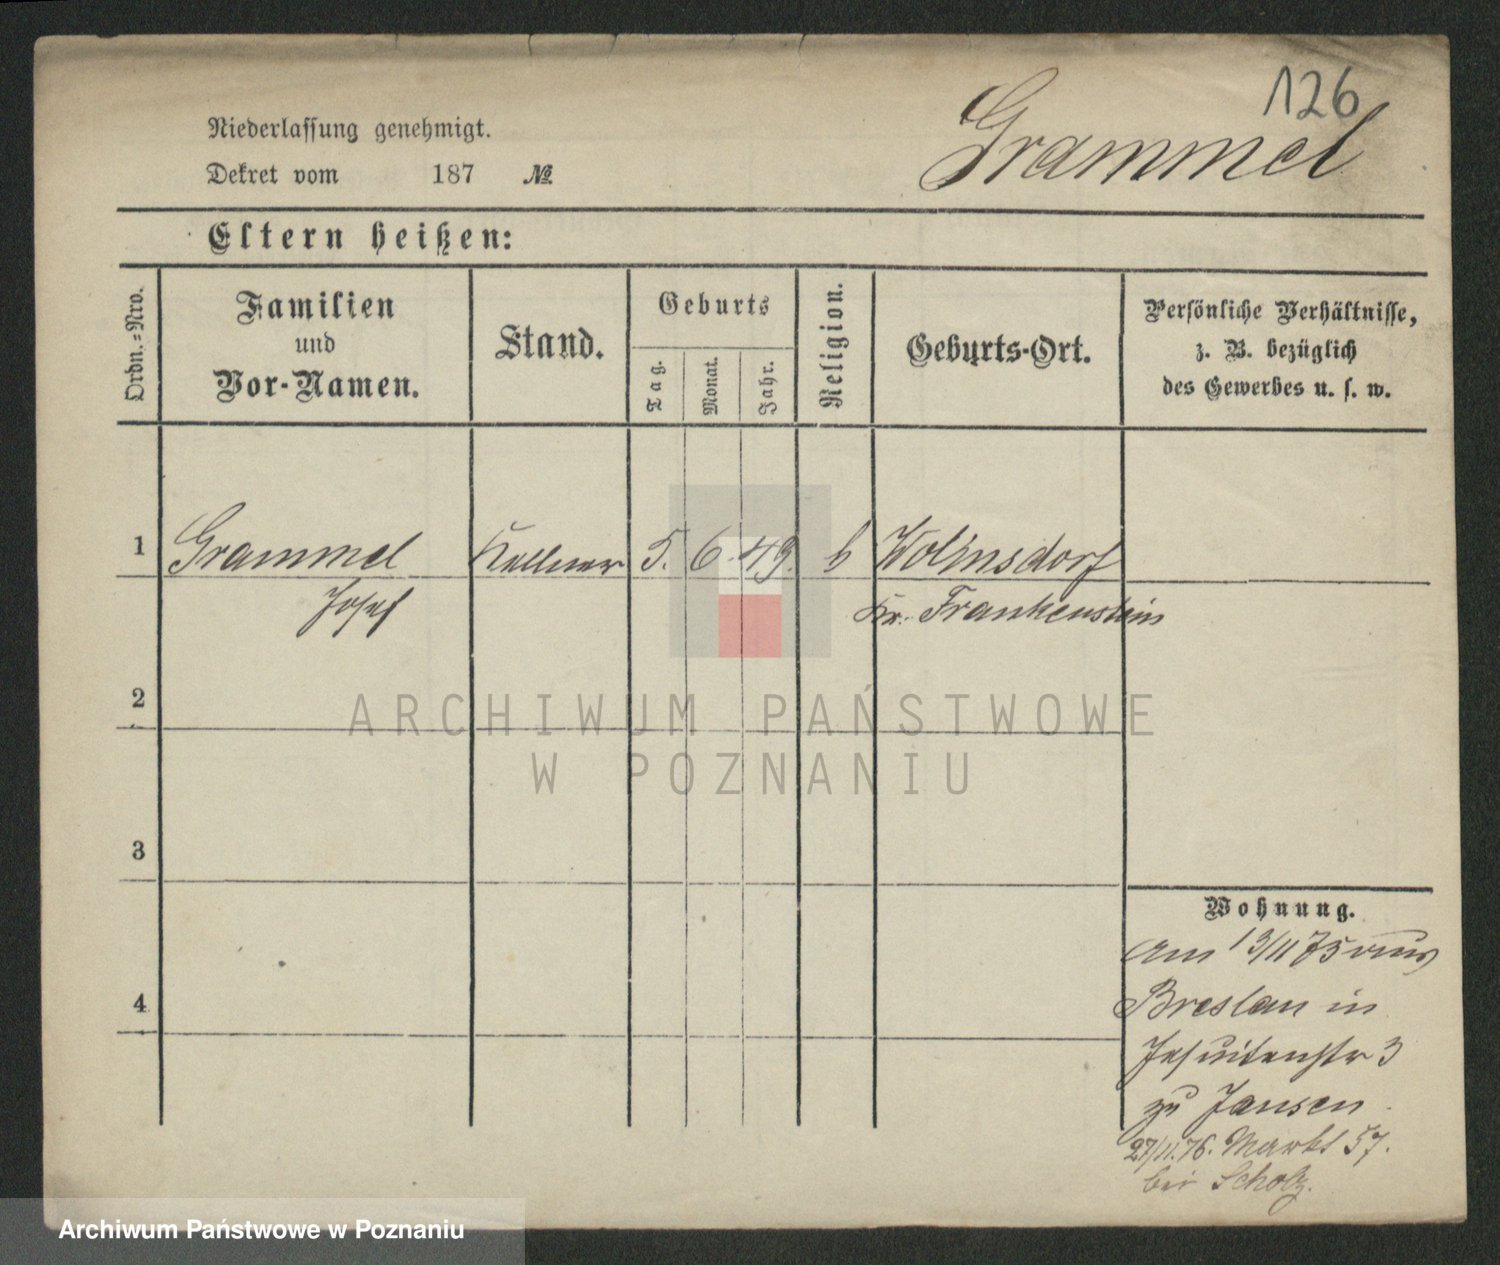 126
Niederlassung genehmigt.
Grammel
Dekret vom 187 №
Eltern heißen:
Ordn.-Nro.
Familien
und
Vor-Namen.
Stand.
Geburts
Tag.
Monat.
Jahr.
Religion.
Geburts-Ort.
Persönliche Verhältnisse,
z. B. bezüglich
des Gewerbes u. s. w.
1 Grammel Kellner 5. 6. 49. k Wolmsdorf
Josef Kr. Frankenstein
2
3
4
Wohnung.
Am 13/11 75 aus
Breslau in
Jesuitenstr 3
zu Jansen
27/11. 76. Markt 57.
bei Scholz.
ARCHIWUM PAŃSTWOWE
W POZNANIU
Archiwum Państwowe w Poznaniu